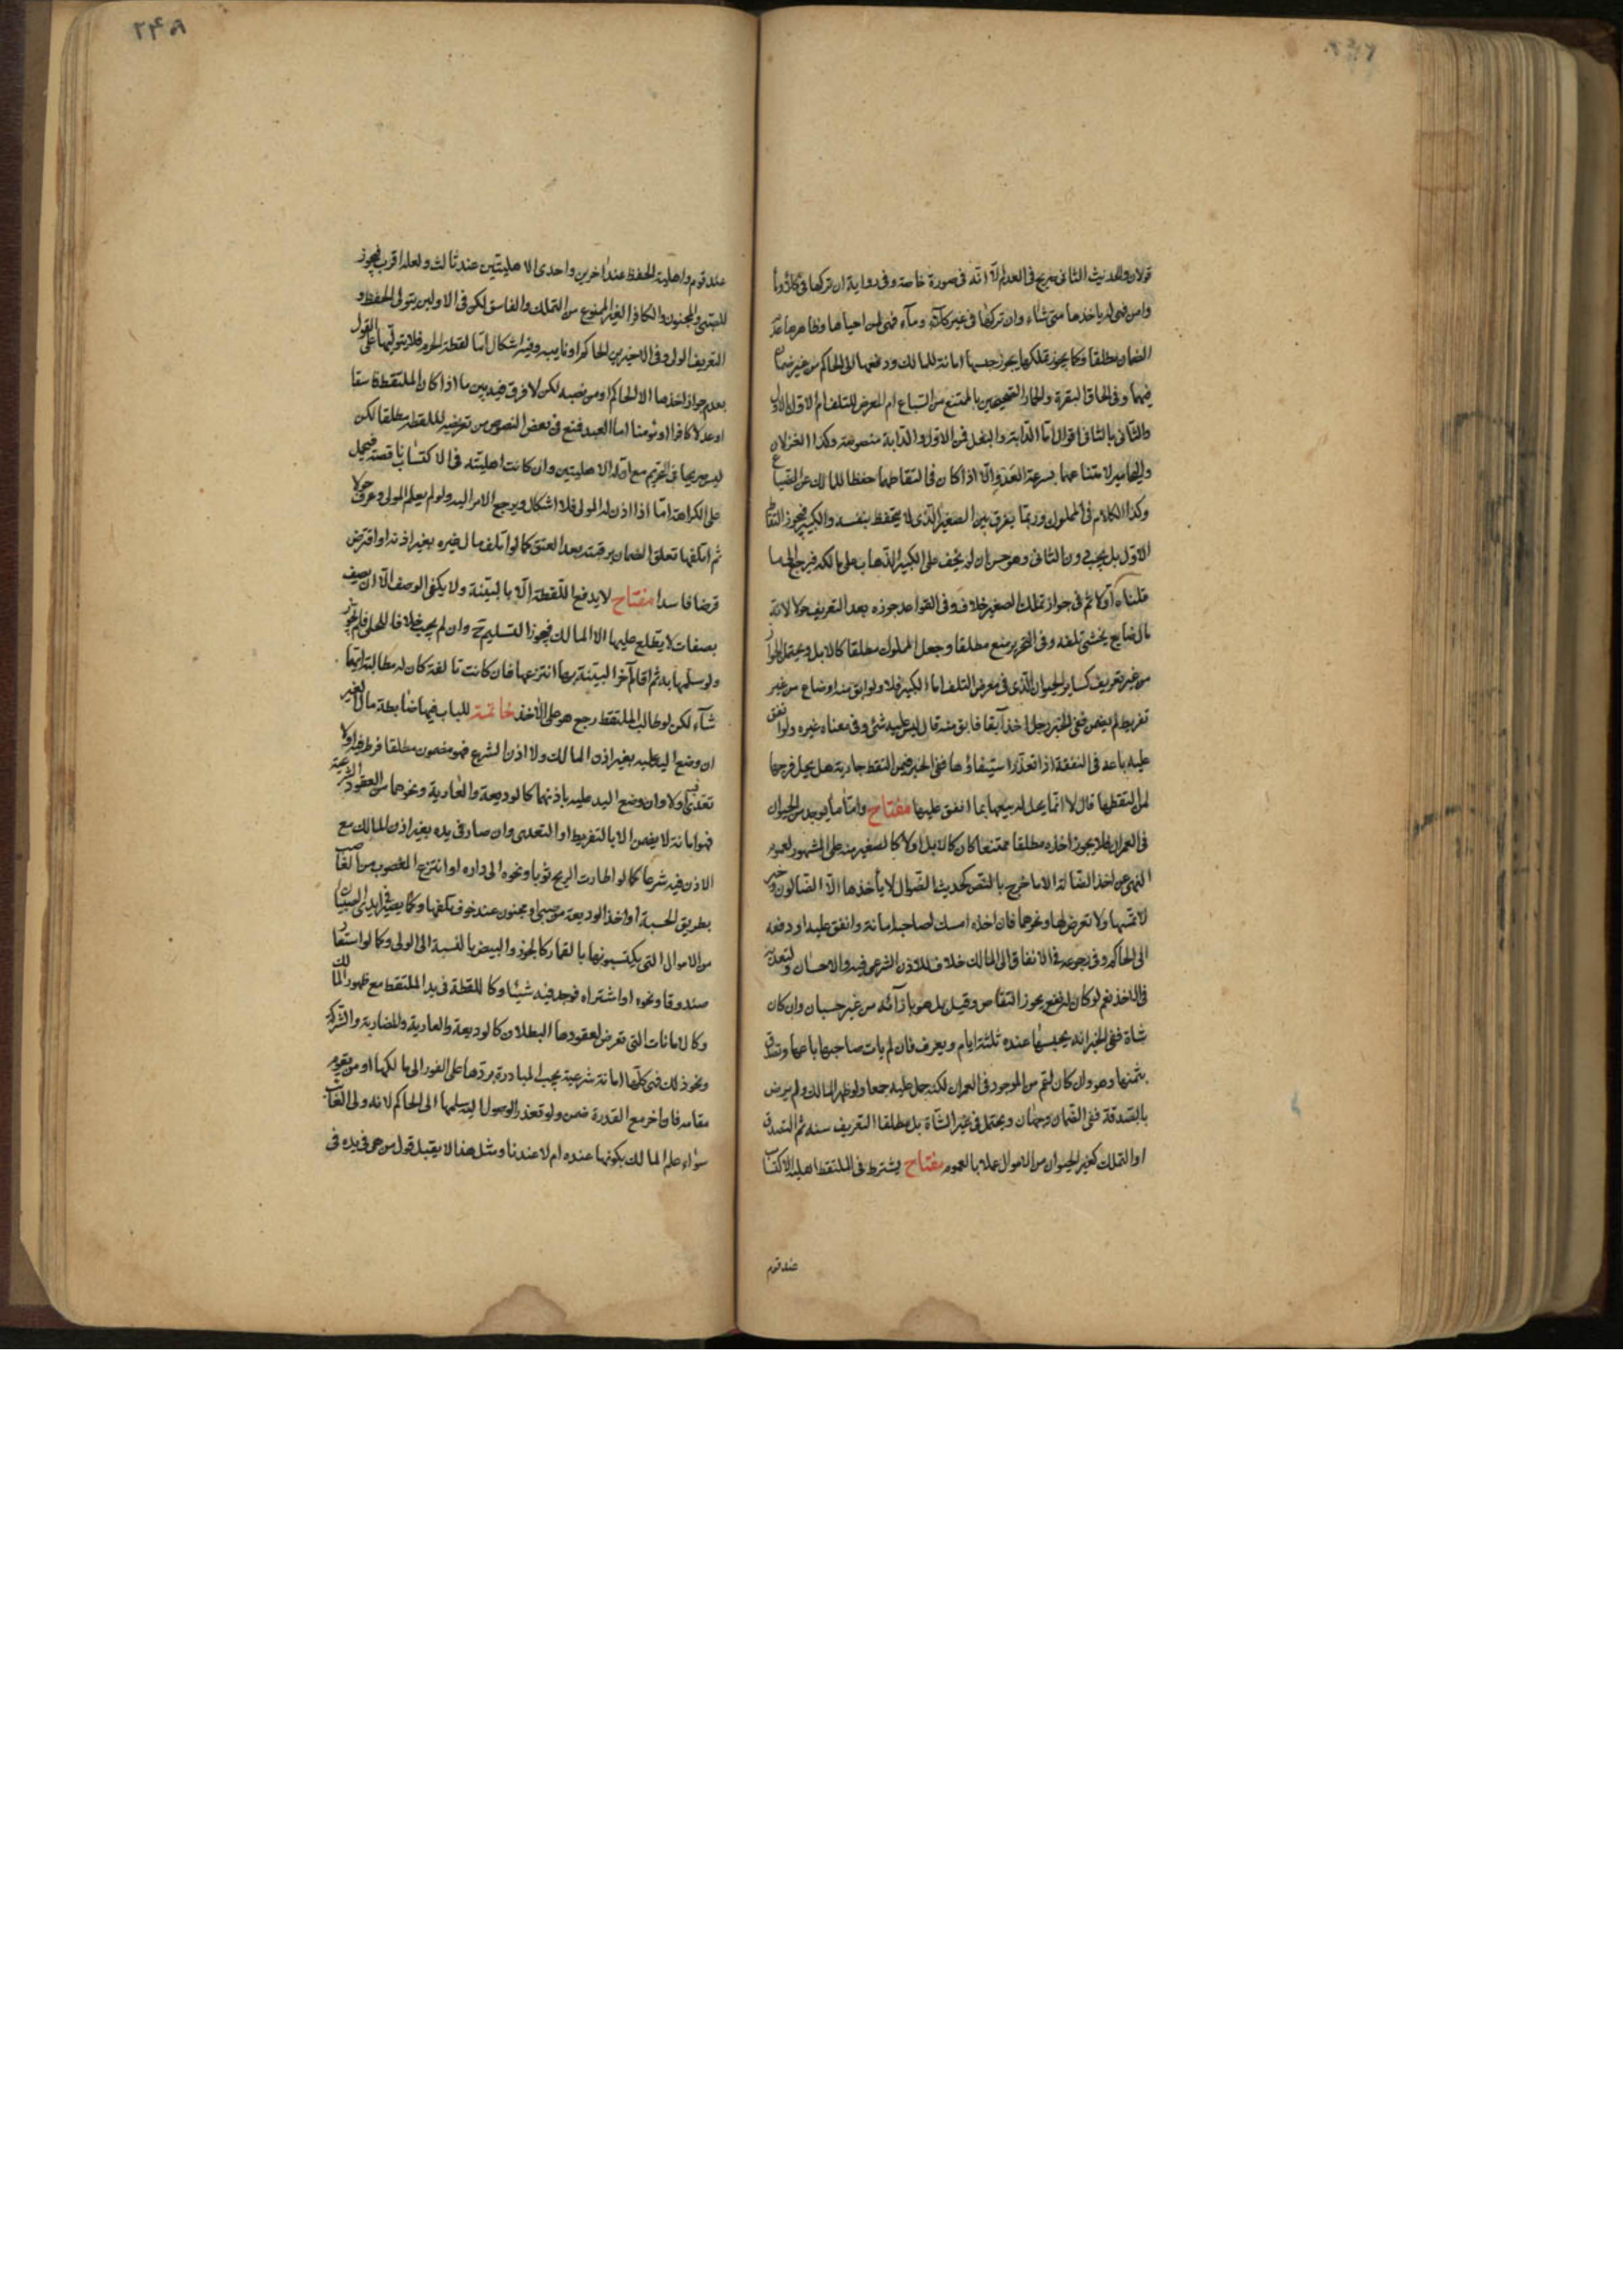 قولان والحديث الثانى صريح فى العدم الّا انّه فى صورة خاصة وفى رواية ان تركها فى كلاء وماء
وامن فهى له ياخذها متى شاء وان تركها فى غير كلاء وماء فهى لمن احياها وظاهرها عدم
الضمان مطلقا وكما يجوز تملكها يجوز حبسها امانة للمالك ودفعها الى الحاكم من غير ضمان
فيهما وفى الحاق البقرة والحمار الصحيحين بالممتنع من السباع ام المعرض للتلف ام الاول بالاول
والثانى بالثانى اقوال امّا الدّابة والبغل فمن الاول والدّابة منصوصة وكذا الغزلان
واليحامير لامتناعهما بسرعة العدو الّا اذا كان فى التقاطهما حفظا للمالك عن الضياع
وكذا الكلام فى المملوك وربّما يفرق بين الصغير الّذى لا يتحفظ بنفسه والكبير فيجوز التقاط
الاوّل بل يجب دون الثانى وهو حسن ان لم يخف على الكبير الذهاب على مالكه فيرجع الى ما
قلناه اولا ثم فى جواز تملك الصغير خلاف وفى القواعد جوزه بعد التعريف حولا لانه
مال ضايع يخشى تلفه وفى التحرير منع مطلقا وجعل المملوك مطلقا كالابل ويحتمل الجواز
من غير تعريف كساير الحيوان الّذى فى معرض التلف اما الكبير فلا ولو ابق منه اوضاع من غير
تفريط لم يضمن ففى الخبر رجل اخذ آبقا فابق منه قال ليس عليه شئ وفى معناه غيره ولو انفق
عليه باعه فى النفقة اذا تعذّر استيفاؤها ففى الخبر فيمن التقط جارية هل يحل فرجها
لمن التقطها قال لا انّما يحل له بيعها بما انفق عليها مفتاح وامّا ما يوجد من الحيوان
فى العمران فلا يجوز اخذه مطلقا ممتنعا كان كالابل اولا كالصغير منه على المشهور لعموم
النهى عن اخذ الضّالة الا ما خرج بالنّص كحديث الضّوال لا يأخذها الّا الضّالون وخبر
لا تمسّها ولا تعرض لها ونحوهما فان اخذه امسك لصاحبه امانة وانفق عليه او دفعه
الى الحاكم وفى رجوعه فى الانفاق الى المالك خلاف للاذن الشرعى فيه والاحسان ولتعديه
فى الاخذ نعم لو كان له نفع يجوز التقاص وقيل بل هو بازائه من غير حسبان وان كان
شاة ففى الخبر انّه يحبسها عنده ثلثة ايام ويعرف فان لم يات صاحبها باعها وتصدّق
بثمنها وهو وان كان لتم من الموجود فى العمران لكنه حمل عليه جمعا ولو ظهر المالك ولم يرض
بالصّدقة ففى الضّمان وجهان ويحتمل فى غير الشّاة بل مطلقا التعريف سنة ثم التصدق
او التملك كغير الحيوان من الاموال عملا بالعموم مفتاح يشترط فى الملتقط اهلية الاكتساب
عند قوم
عند قوم واهلية الحفظ عند اخرين واحدى الاهليتين عند ثالث ولعله اقرب فيجوز
للصبى والمجنون والكافر الغير الممنوع من التملك والفاسق لكن فى الاولين يتولى الحفظ و
التعريف الولى وفى الاخيرين الحاكم او نايبه وفيه اشكال امّا لقطة الحرم فلا يتولّيها على القول
بعدم جواز اخذها الا الحاكم او من نصبه لكن لا فرق فيه بين ما اذا كان الملتقط فاسقا
او عدلا كافرا او مؤمنا اما العبد فمنع فى بعض النصوص من تعرضه للّقطة مطلقا لكن
ليس صريحا فى التحريم مع انّ له الاهليتين وان كانت اهليّته فى الاكتساب ناقصة فيحمل
على الكراهة امّا اذا اذن له المولى فلا اشكال ويرجع الامر اليه ولو لم يعلم المولى وعرف حولا
ثم اتلفها تعلق الضمان برقبته بعد العتق كما لو اتلف مال غيره بغير اذنه او اقترض
قرضا فاسدا مفتاح لا يدفع اللّقطة الّا بالبيّنة ولا يكفى الوصف الّا ان يصف
بصفات لا يطلع عليها الا المالك فيجوز التسليم ح وان لم يجب خلافا للحلى فلم يجوّز
ولو سلمها به ثم اقام آخر البيّنة بها انتزعها فان كانت تالفة كان له مطالبة ايّهما
شاء لكن لو طالب الملتقط رجع هو على الآخذ خاتمة للباب فيها ضابطة مال الغير
ان وضع اليد عليه بغير اذن المالك ولا اذن الشرع فهو مضمون مطلقا فرط فيه اولا
تعدّى اولا وان وضع اليد عليه باذنهما كالوديعة والعارية ونحوهما من العقود الشرعية
فهو امانة لا يضمن الا بالتفريط او التعدى وان صار فى يده بغير اذن المالك مع
الاذن فيه شرعا كما لو اطارت الريح ثوبا ونحوه الى داره او انتزع المغصوب من الغاصب
بطريق الحسبة او اخذ الوديعة من صبى او مجنون عند خوف تلفها وكما يصير فى ايدى الصبيان
من الاموال التى يكتسبونها بالقمار كالجوز والبيض بالنسبة الى الولى وكما لو استعار
صندوقا ونحوه او اشتراه فوجد فيه شيئا وكاللقطة فى يد الملتقط مع ظهور المالك
وكالامانات التى تعرض لعقودها البطلان كالوديعة والعارية والمضاربة والشركة
ونحو ذلك فهى كلّها امانة شرعية يجب المبادرة بردّها على الفور الى مالكها او من يقوم
مقامه فان اخر مع القدرة ضمن ولو تعذر الوصول اليه سلمها الى الحاكم لانه ولى الغائب
سواء علم المالك بكونها عنده ام لا عندنا ومثل هذا لا يقبل قول من هى فى يده فى